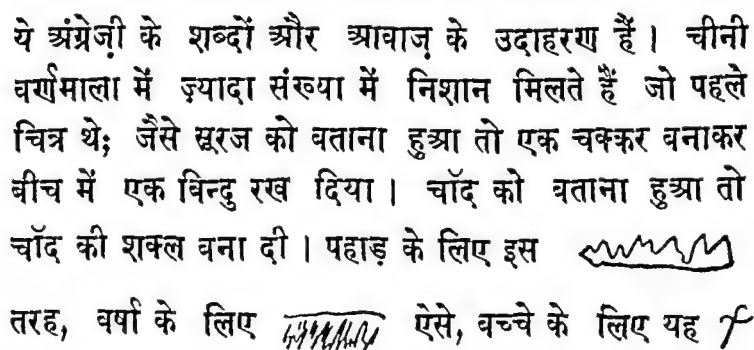 ये अंग्रेज़ी के शब्दों और आवाज़ के उदाहरण हैं। चीनी
वर्णमाला में ज़्यादा संख्या में निशान मिलते हैं जो पहले
चित्र थे; जैसे सूरज को बताना हुआ तो एक चक्कर बनाकर
बीच में एक बिन्दु रख दिया। चाँद को बताना हुआ तो
चाँद की शक्ल बना दी। पहाड़ के लिए इस
तरह, वर्षा के लिए ऐसे, बच्चे के लिए यह